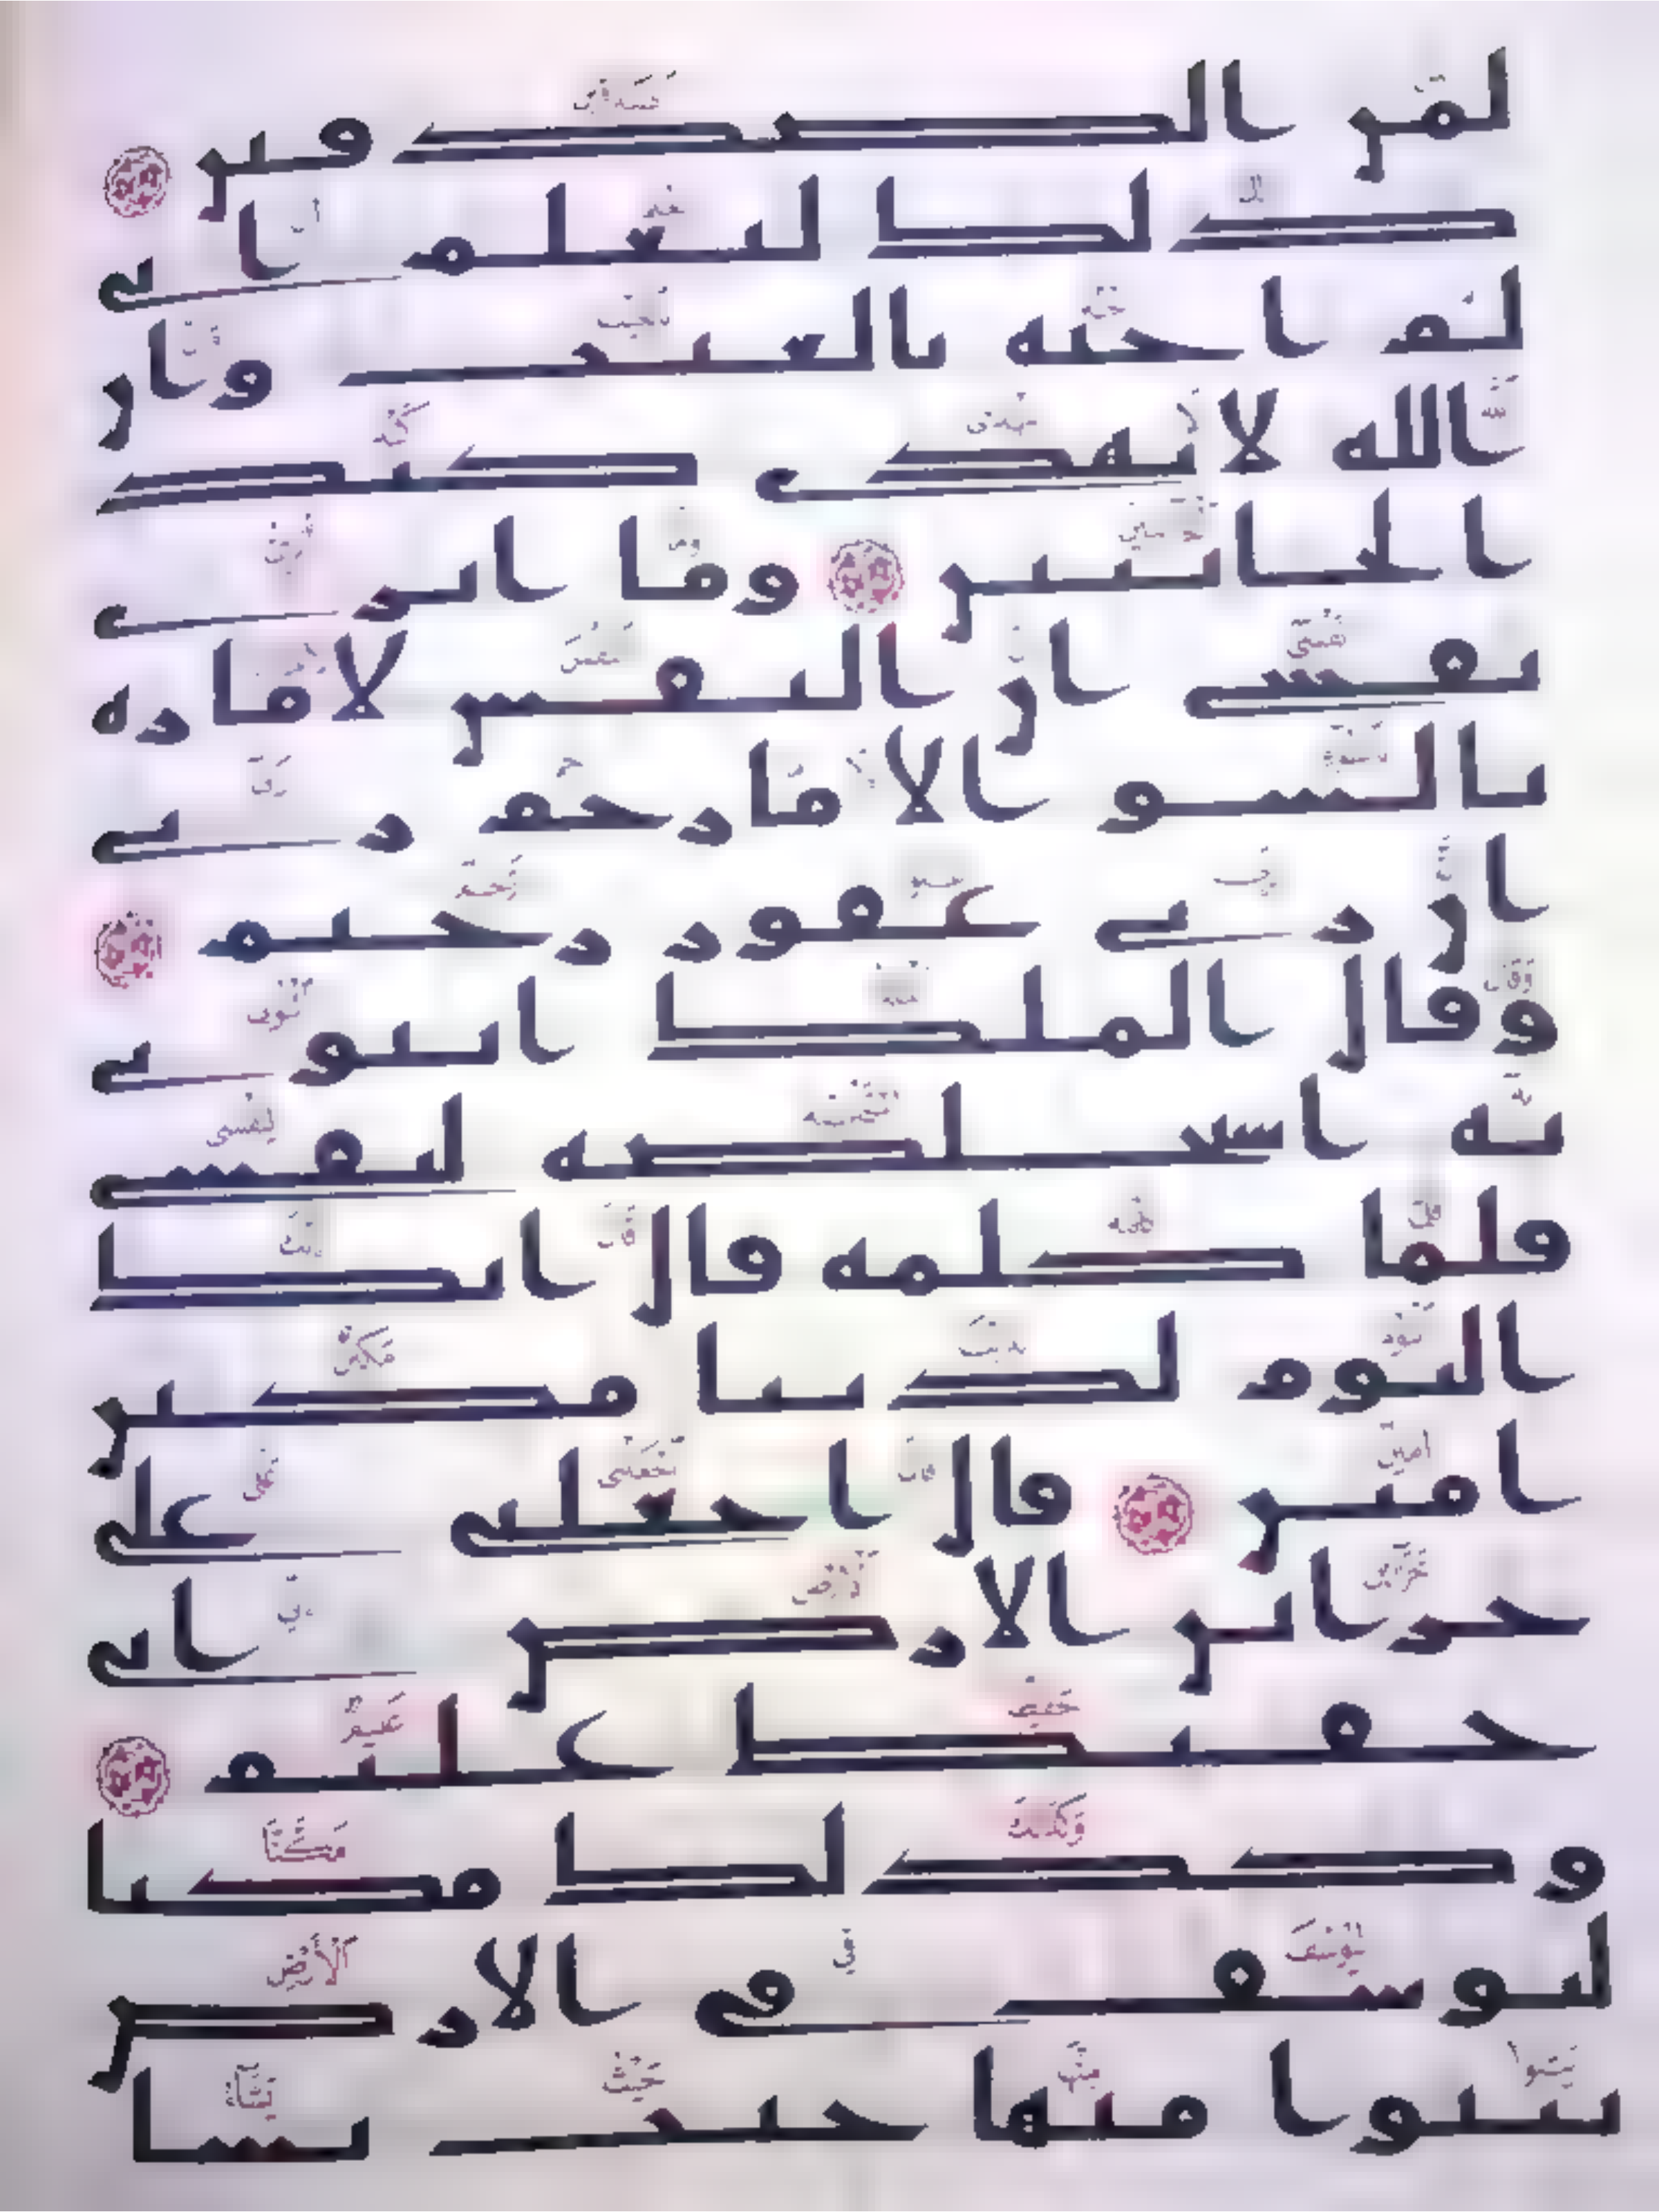 لمن الصدقين
ذلك ليعلم اني
لم اخنه بالغيب وان
الله لا يهدي كيد
الخاينين وما ابري
نفسي ان النفس لامارة
بالسو الا ما رحم ربي
ان ربي غفور رحيم
وقال الملك ايتوني
به استخلصه لنفسي
فلما كلمه قال انك
اليوم لدينا مكين
امين قال اجعلني على
خزاين الارض اني
حفيظ عليم
وكذلك مكنا
ليوسف في الارض
يتبوا منها حيث يشا